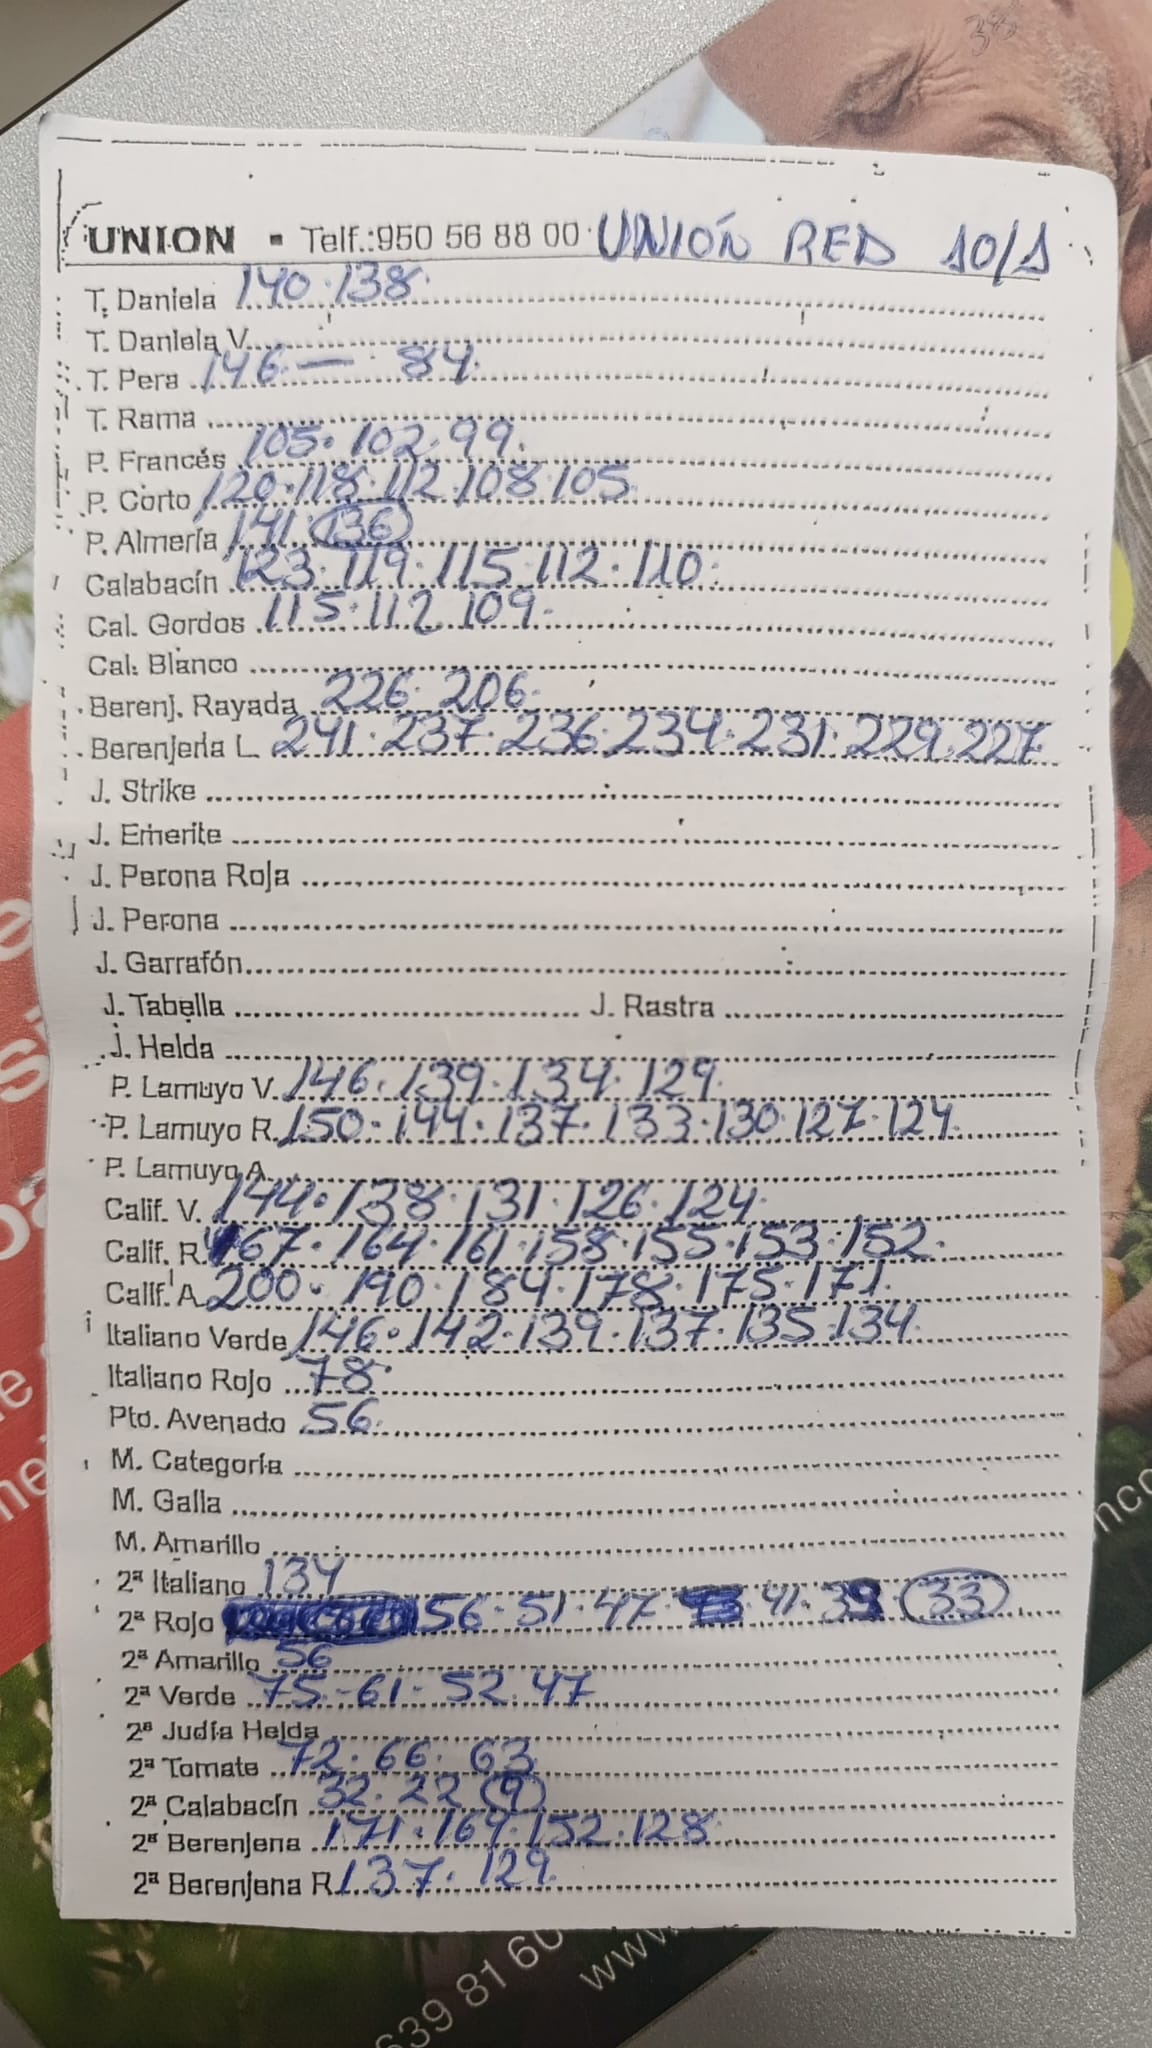 38
UNION - Telf.:950 56 88 00 UNIÓN RED 10/1
T. Daniela 140.138.
T. Daniela V.
T. Pera 146. — 84.
T. Rama
P. Francés 105. 102.99.
P. Corto 120.118.112.108.105
P. Almería 141.136
Calabacín 123.119.115.112.110.
Cal. Gordos 115.112.109.
Cal. Blanco
Berenj. Rayada 226. 206.
Berenjena L. 241.237.236.234.231.229.227
J. Strike
J. Emerite
J. Perona Roja
J. Perona
J. Garrafón
J. Tabella J. Rastra
J. Helda
P. Lamuyo V. 146.139.134.129.
P. Lamuyo R. 150.144.137.133.130.127.124.
P. Lamuyo A.
Calif. V. 144.138.131.126.124.
Calif. R. 167.164.161.158.155.153.152.
Calif. A. 200.190.184.178.175.171.
Italiano Verde 146.142.139.137.135.134.
Italiano Rojo 78.
Pto. Avenado 56.
M. Categoría
M. Galla
M. Amarillo
2ª Italiano 134
2ª Rojo 56.51.47. 41.39 33
2ª Amarillo 56
2ª Verde 75.-61-52.47
2ª Judía Helda
2ª Tomate 72.66.63.
2ª Calabacín 32.22 9
2ª Berenjena 171.164.152.128.
2ª Berenjena R. 137.129.
639 81 60
www.